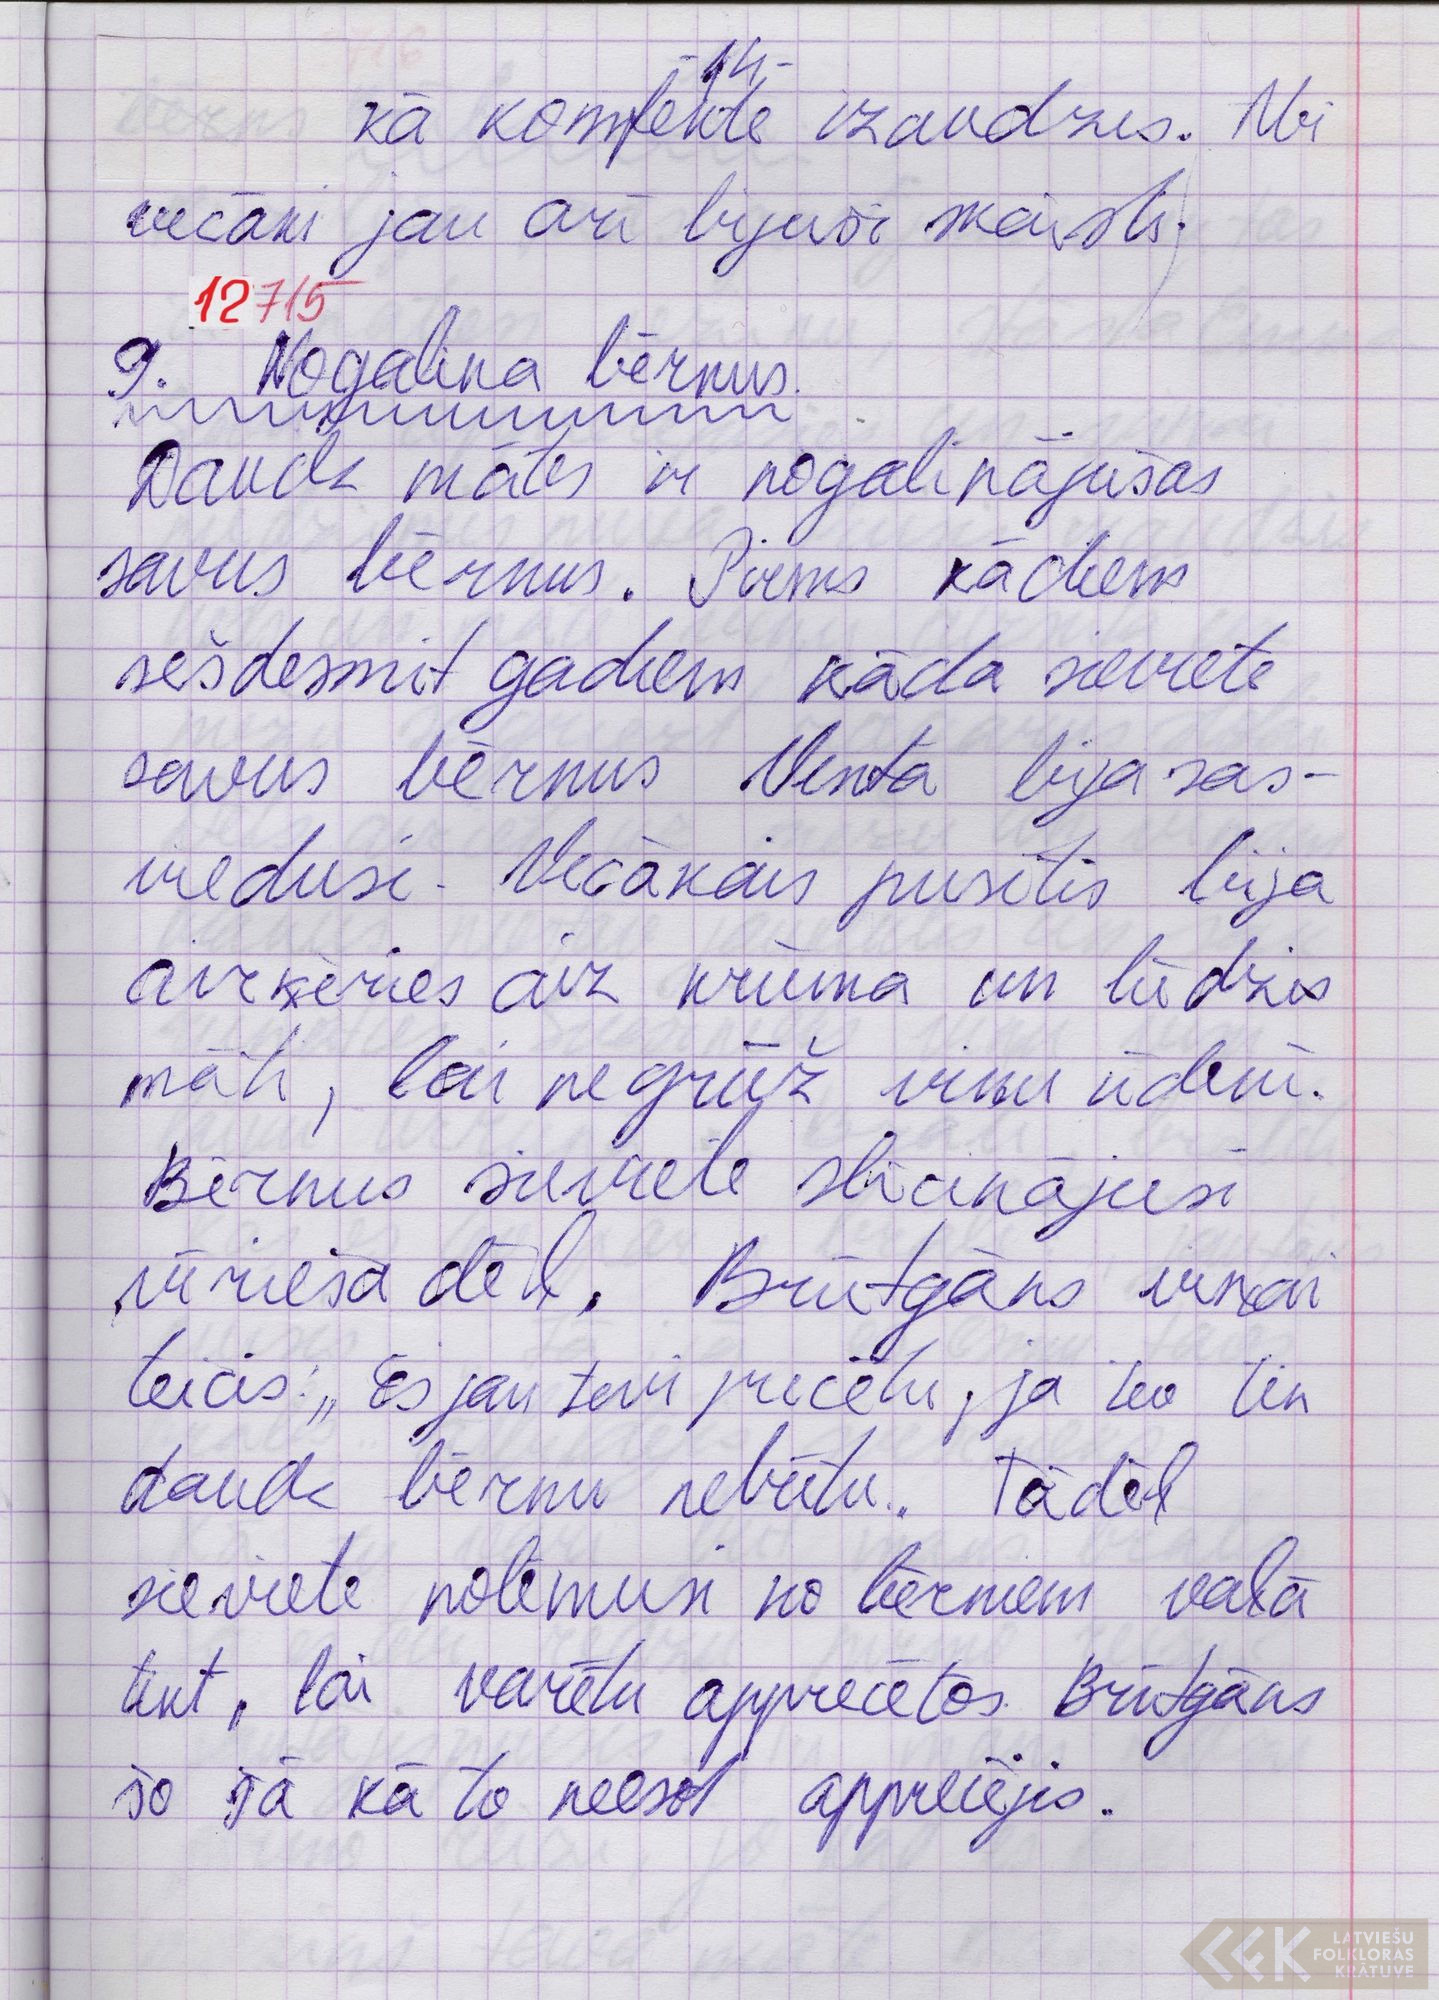 -14-
kā komfekte izaudzis. Abi
vecāki jau arī bijuši skaisti.
12715
9. Nogalina bērnus.
Daudz mātes ir nogalinājušas
savus bērnus. Pirms kādiem
sešdesmit gadiem kāda sieviete
savus bērnus Ventā bija sas-
viedusi. Vecākais puisītis bija
aizķēries aiz krūma un lūdzis
māti, lai negrūž viņu ūdenī.
Bērnus sieviete slīcinājusi
vīrieša dēļ. Brūtgāns viņai
teicis: „Es jau tevi precētu, ja tev tik
daudz bērnu nebūtu." Tādēļ
sieviete nolēmusi no bērniem vaļā
tikt, lai varētu apprecētos. Brūtgāns
šo tā kā to neesot apprecējis.
LATVIEŠU
FOLKLORAS
KRĀTUVE